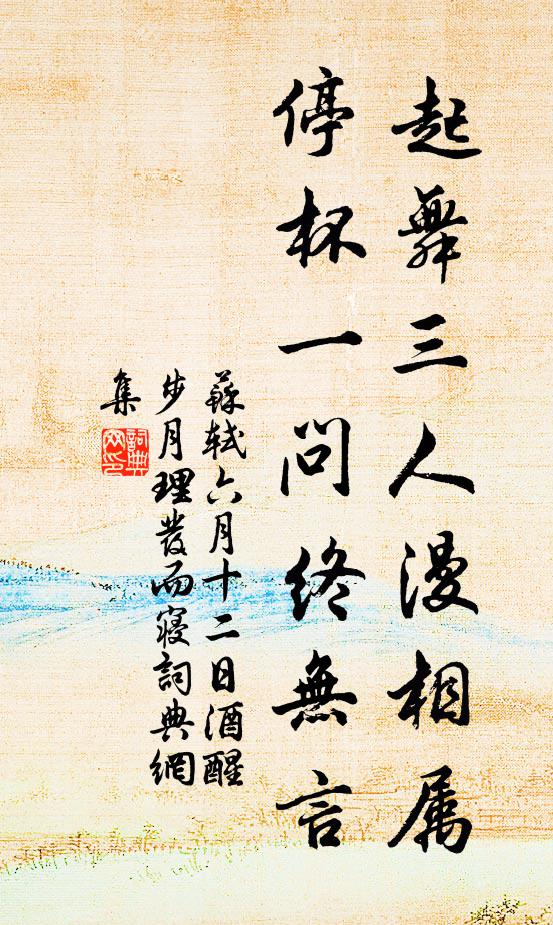 起舞三人漫相属
停杯一问終無言
蘇軾六月十二日酒醒
步月理發而寢詞典網
集
詞典网印